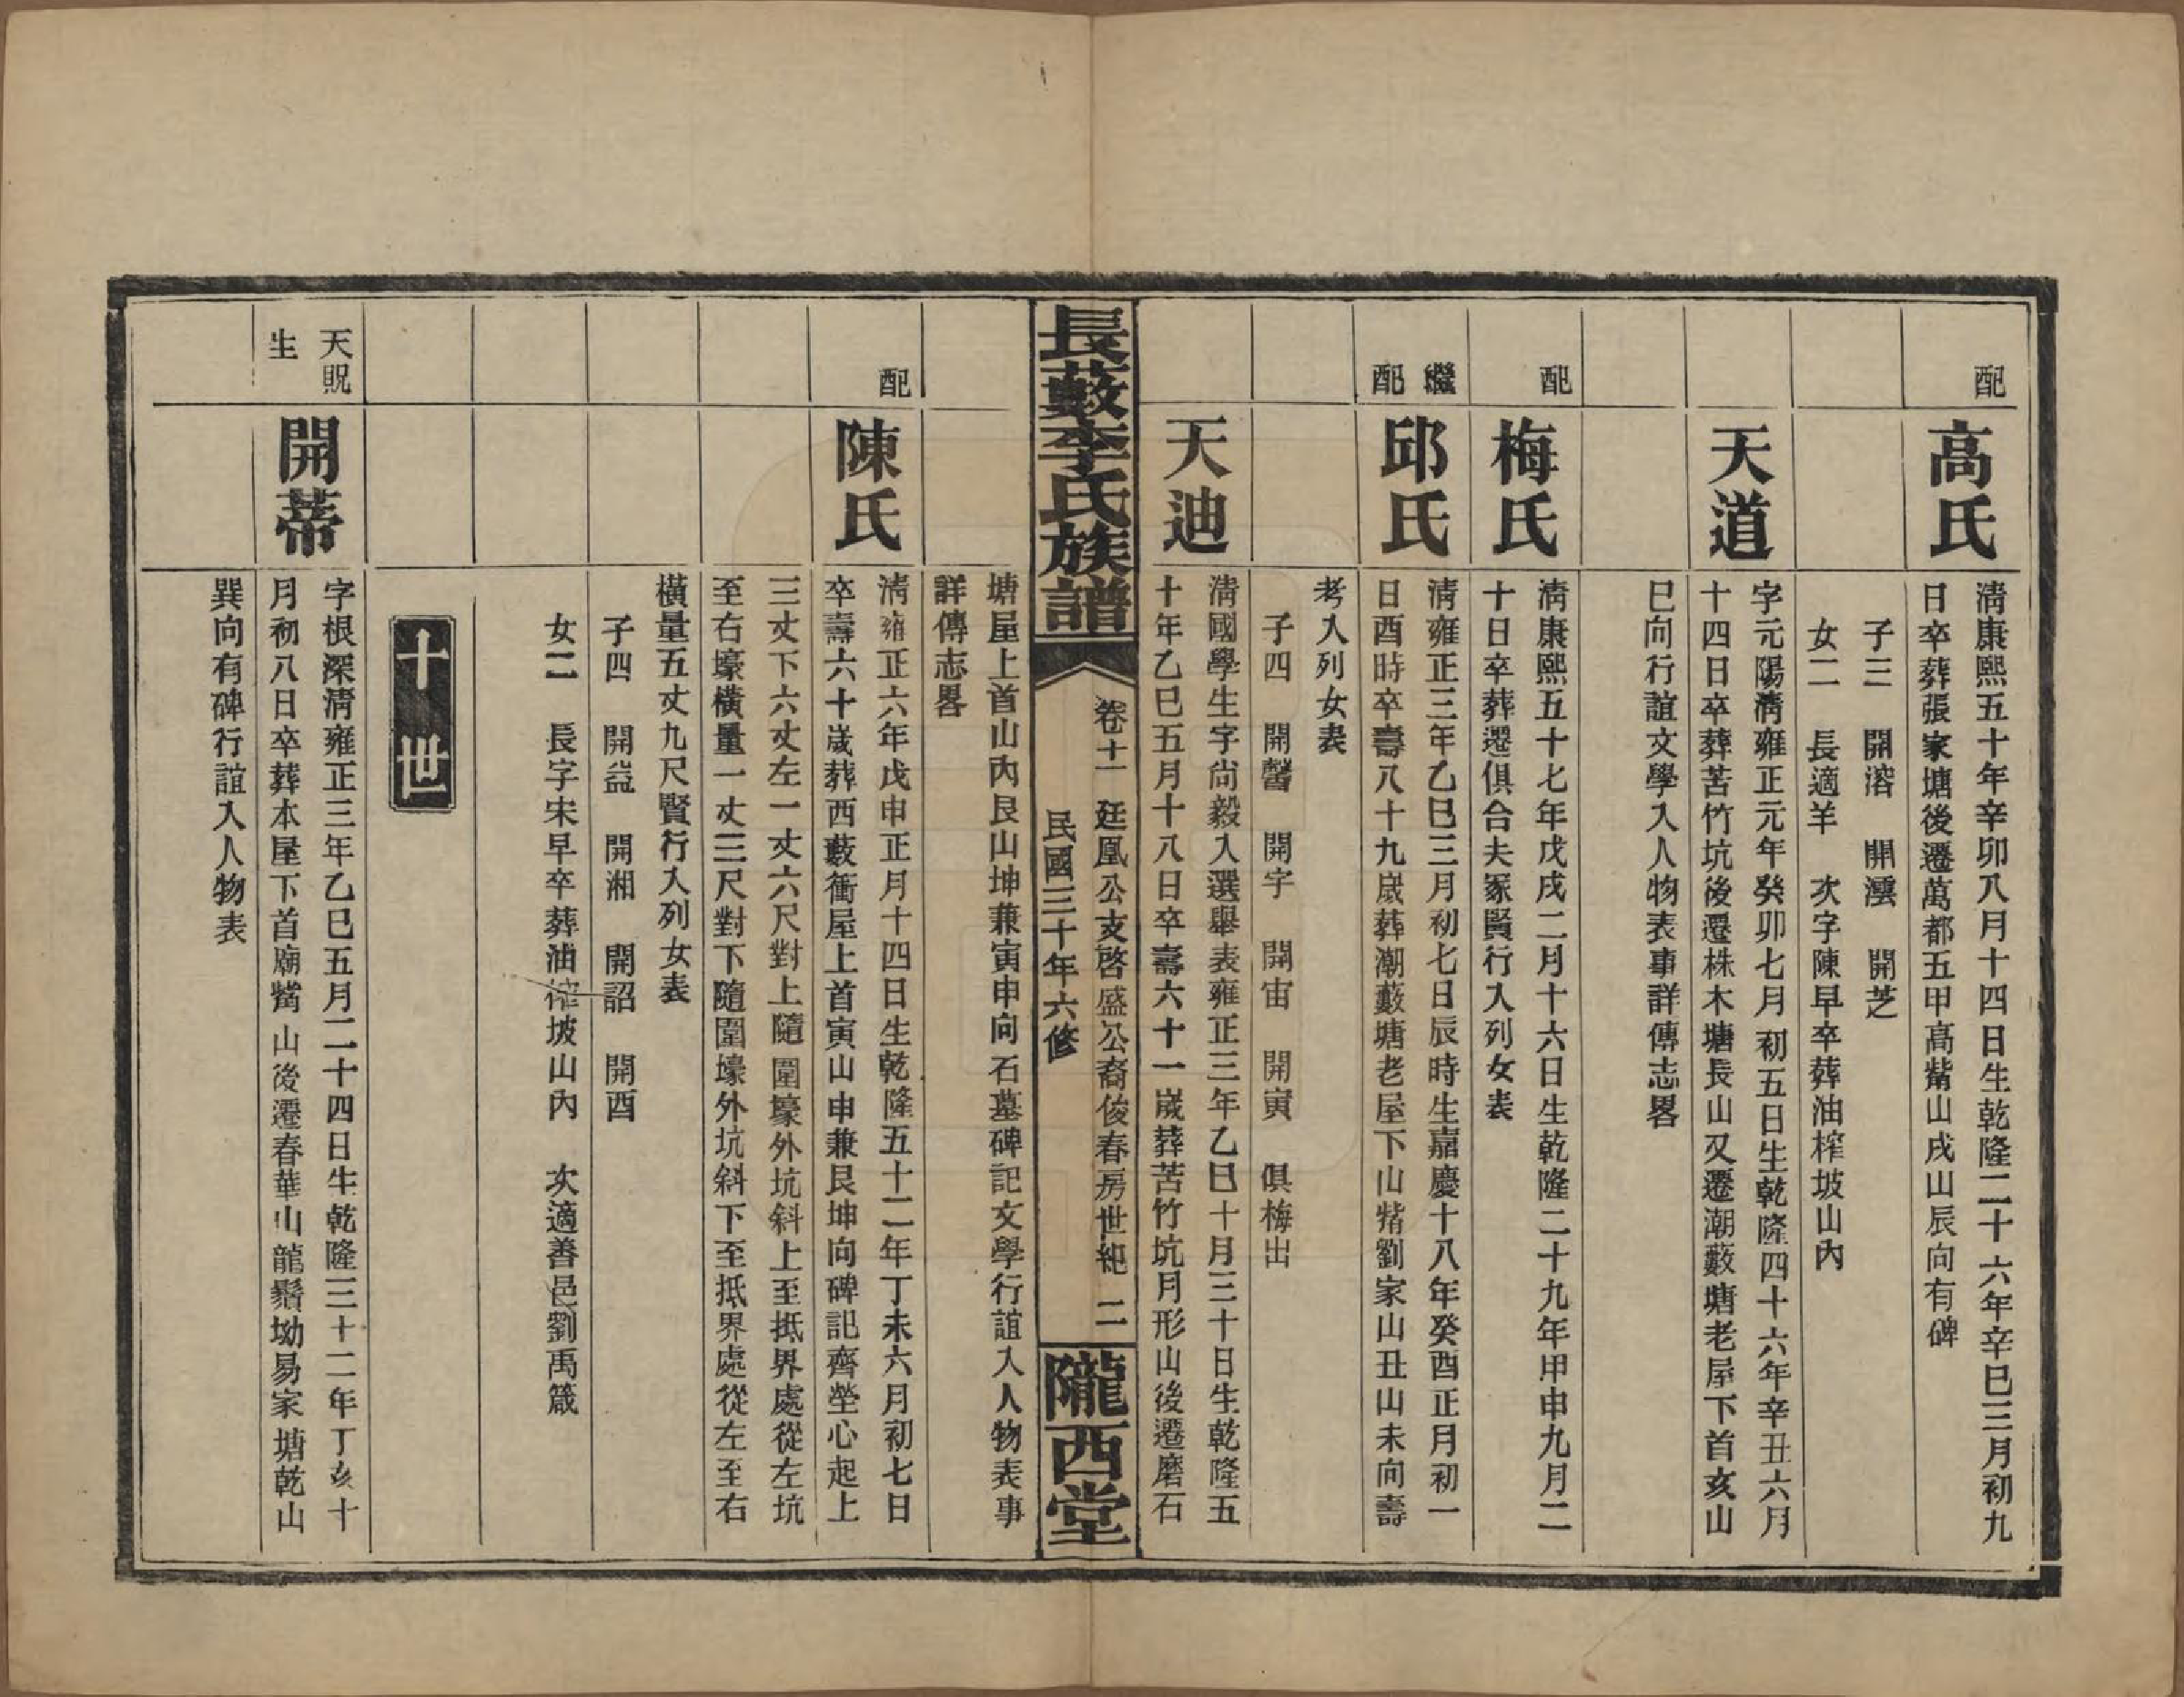 配
高氏
清康熙五十年辛卯八月十四日生乾隆二十六年辛巳三月初九
日卒葬張家塘後遷萬都五甲高觜山戌山辰向有碑
子三 開溶 開澐 開芝
女二 長適羊 次字陳早卒葬油榨坡山內
天道
字元陽清雍正元年癸卯七月初五日生乾隆四十六年辛丑六月
十四日卒葬苦竹坑後遷株木塘長山又遷潮藪塘老屋下首亥山
巳向行誼文學入人物表事詳傳志畧
配
梅氏
清康熙五十七年戊戌二月十六日生乾隆二十九年甲申九月二
十日卒葬遷俱合夫冢賢行入列女表
繼
配
邱氏
清雍正三年乙巳三月初七日辰時生嘉慶十八年癸酉正月初一
日酉時卒壽八十九歲葬潮藪塘老屋下山觜劉家山丑山未向壽
考入列女表
子四 開馨 開字 開宙 開寅 俱梅出
天迪
清國學生字尙毅入選舉表雍正三年乙巳十月三十日生乾隆五
十年乙巳五月十八日卒壽六十一歲葬苦竹坑月形山後遷磨石
長藪李氏族譜
卷十一 廷凰公支啓盛公裔俊春房世紀 二
民國三十年六修
隴西堂
塘屋上首山內艮山坤兼寅申向石墓碑記文學行誼入人物表事
詳傳志畧
配
陳氏
清雍正六年戊申正月十四日生乾隆五十二年丁未六月初七日
卒壽六十歲葬西藪衝屋上首寅山申兼艮坤向碑記齊塋心起上
三丈下六丈左一丈六尺對上隨圍壕外坑斜上至抵界處從左坑
至右壕橫量一丈三尺對下隨圍壕外坑斜下至抵界處從左至右
橫量五丈九尺賢行入列女表
子四 開益 開湘 開詔 開酉
女二 長字宋早卒葬油榨坡山內 次適善邑劉禹箴
十世
天貺
生
開蒂
字根深清雍正三年乙巳五月二十四日生乾隆三十二年丁亥十
月初八日卒葬本屋下首廟觜山後遷春華山龍鬚坳易家塘乾山
巽向有碑行誼入人物表